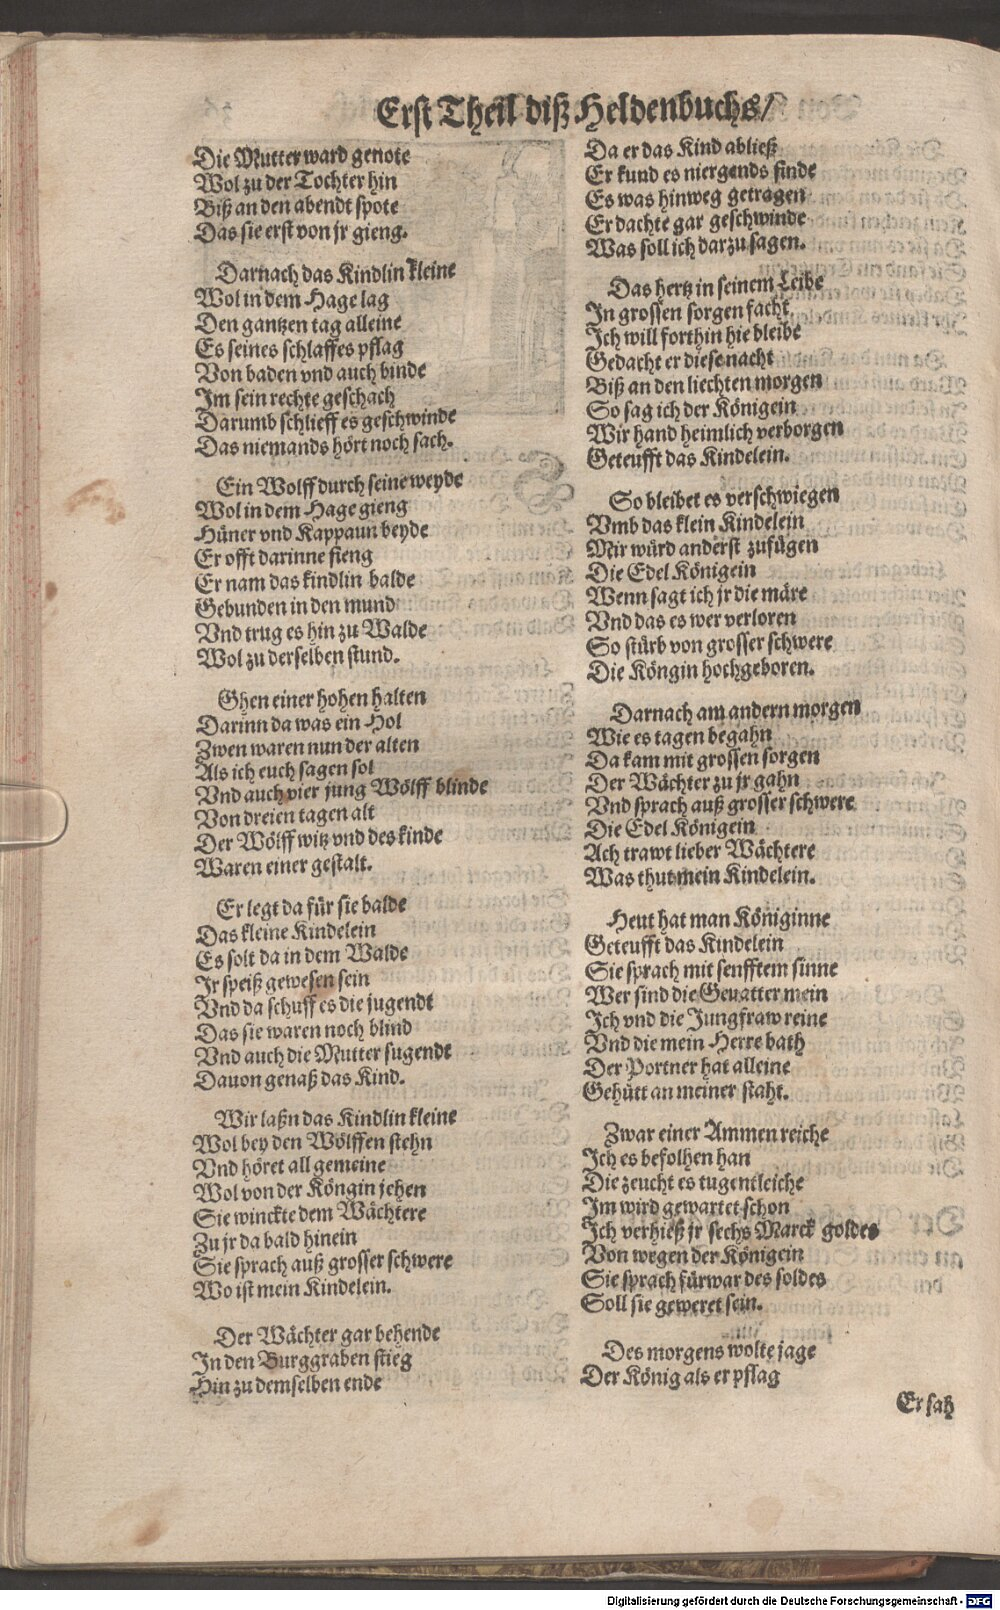 Erst Theil diß Heldenbuchs/
Die Mutter ward genote
Wol zu der Tochter hin
Biß an den abendt spote
Das sie erst von jr gieng.
Darnach das Kindlin kleine
Wol in dem Hage lag
Den gantzen tag alleine
Es seines schlaffes pflag
Von baden vnd auch binde
Im sein rechte geschach
Darumb schlieff es geschwinde
Das niemands hört noch sach.
Ein Wolff durch seine weyde
Wol in dem Hage gieng
Hüner vnd Kappaun beyde
Er offt darinne fieng
Er nam das kindlin balde
Gebunden in den mund
Vnd trug es hin zu Walde
Wol zu derselben stund.
Ghen einer hohen halten
Darinn da was ein Hol
Zwen waren nun der alten
Als ich euch sagen sol
Vnd auch vier jung Wölff blinde
Von dreien tagen alt
Der Wölff witz vnd des kinde
Waren einer gestalt.
Er legt da für sie balde
Das kleine Kindelein
Es solt da in dem Walde
Jr speiß gewesen sein
Vnd da schuff es die jugendt
Das sie waren noch blind
Vnd auch die Mutter sugendt
Dauon genaß das Kind.
Wir laßn das Kindlin kleine
Wol bey den Wölffen stehn
Vnd höret all gemeine
Wol von der Köngin jehen
Sie winckte dem Wächtere
Zu jr da bald hinein
Sie sprach auß grosser schwere
Wo ist mein Kindelein.
Der Wächter gar behende
In den Burggraben stieg
Hin zu demselben ende
Da er das Kind abließ
Er kund es niergends finde
Es was hinweg getragen
Er dachte gar geschwinde
Was soll ich darzu sagen.
Das hertz in seinem Leibe
In grossen sorgen facht
Ich will forthin hie bleibe
Gedacht er diese nacht
Biß an den liechten morgen
So sag ich der Königein
Wir hand heimlich verborgen
Geteufft das Kindelein.
So bleibet es verschwiegen
Vmb das klein Kindelein
Mir würd anderst zufügen
Die Edel Königein
Wenn sagt ich jr die märe
Vnd das es wer verloren
So stürb von grosser schwere
Die Köngin hochgeboren.
Darnach am andern morgen
Wie es tagen begahn
Da kam mit grossen sorgen
Der Wächter zu jr gahn
Vnd sprach auß grosser schwere
Die Edel Königein
Ach trawt lieber Wächtere
Was thut mein Kindelein.
Heut hat man Königinne
Geteufft das Kindelein
Sie sprach mit senfftem sinne
Wer sind die Geuatter mein
Ich vnd die Jungfraw reine
Vnd die mein Herre bath
Der Portner hat alleine
Gehütt an meiner staht.
Zwar einer Ammen reiche
Ich es befolhen han
Die zeucht es tugentleiche
Im wird gewartet schon
Ich verhieß jr sechs Marck goldes
Von wegen der Königein
Sie sprach fürwar des soldes
Soll sie geweret sein.
Des morgens wolte jage
Der König als er pflag
Er sah
Digitalisierung gefördert durch die Deutsche Forschungsgemeinschaft - DFG